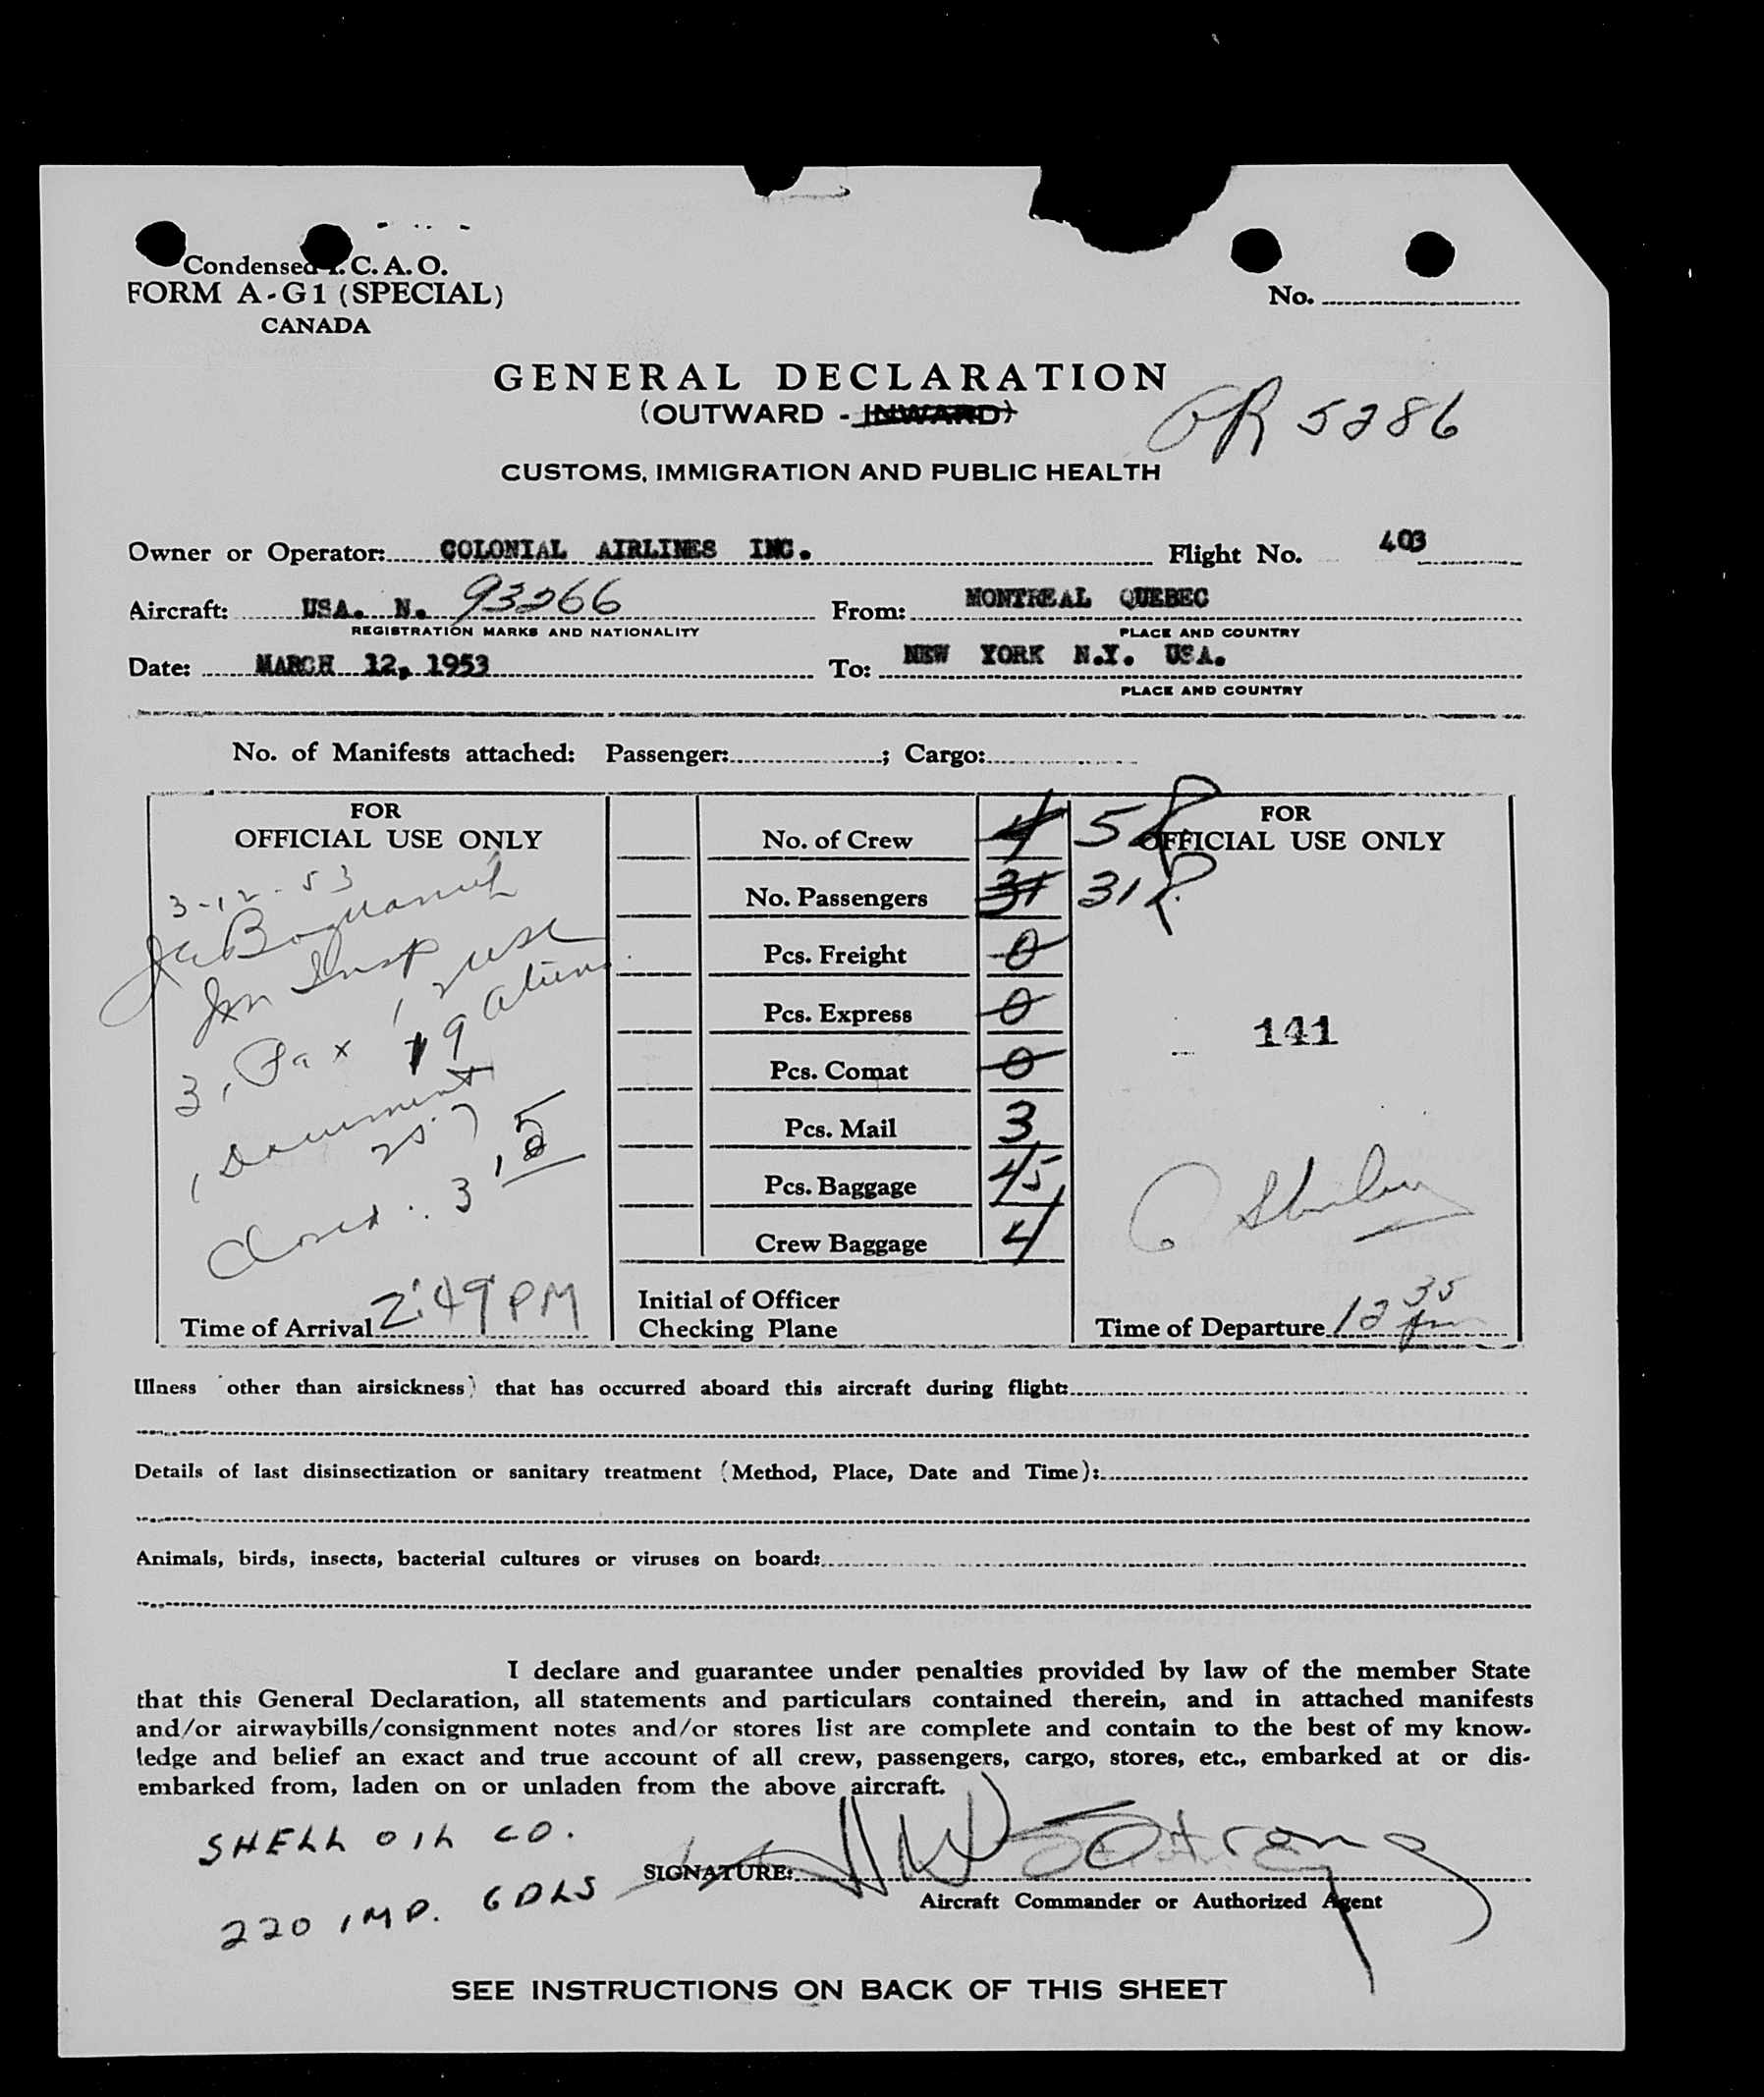 Condensed I.C.A.O.
FORM A-G1 (SPECIAL)
CANADA
No.
GENERAL DECLARATION
(OUTWARD - INWARD)
5286
CUSTOMS, IMMIGRATION AND PUBLIC HEALTH
Owner or Operator: COLONIAL AIRLINES INC. Flight No. 403
Aircraft: USA. N. 93266 From: MONTREAL QUEBEC
REGISTRATION MARKS AND NATIONALITY PLACE AND COUNTRY
Date: MARCH 12, 1953 To: NEW YORK N.Y. USA.
PLACE AND COUNTRY
No. of Manifests attached: Passenger: ; Cargo:
FOR
OFFICIAL USE ONLY
3-12-53
Imm Insp
31 Pax 12 USC
19 aliens
1 Document
Closed
Time of Arrival 2:49 PM
No. of Crew 4 5
No. Passengers 31 31
Pcs. Freight 0
Pcs. Express 0
Pcs. Comat 0
Pcs. Mail 3
Pcs. Baggage 45
Crew Baggage 4
Initial of Officer
Checking Plane
FOR
OFFICIAL USE ONLY
141
Time of Departure 12 35 pm
Illness (other than airsickness) that has occurred aboard this aircraft during flight:
Details of last disinsectization or sanitary treatment (Method, Place, Date and Time):
Animals, birds, insects, bacterial cultures or viruses on board:
I declare and guarantee under penalties provided by law of the member State
that this General Declaration, all statements and particulars contained therein, and in attached manifests
and/or airwaybills/consignment notes and/or stores list are complete and contain to the best of my know-
ledge and belief an exact and true account of all crew, passengers, cargo, stores, etc., embarked at or dis-
embarked from, laden on or unladen from the above aircraft.
SHELL OIL CO.
220 IMP. GDLS
SIGNATURE:
Aircraft Commander or Authorized Agent
SEE INSTRUCTIONS ON BACK OF THIS SHEET